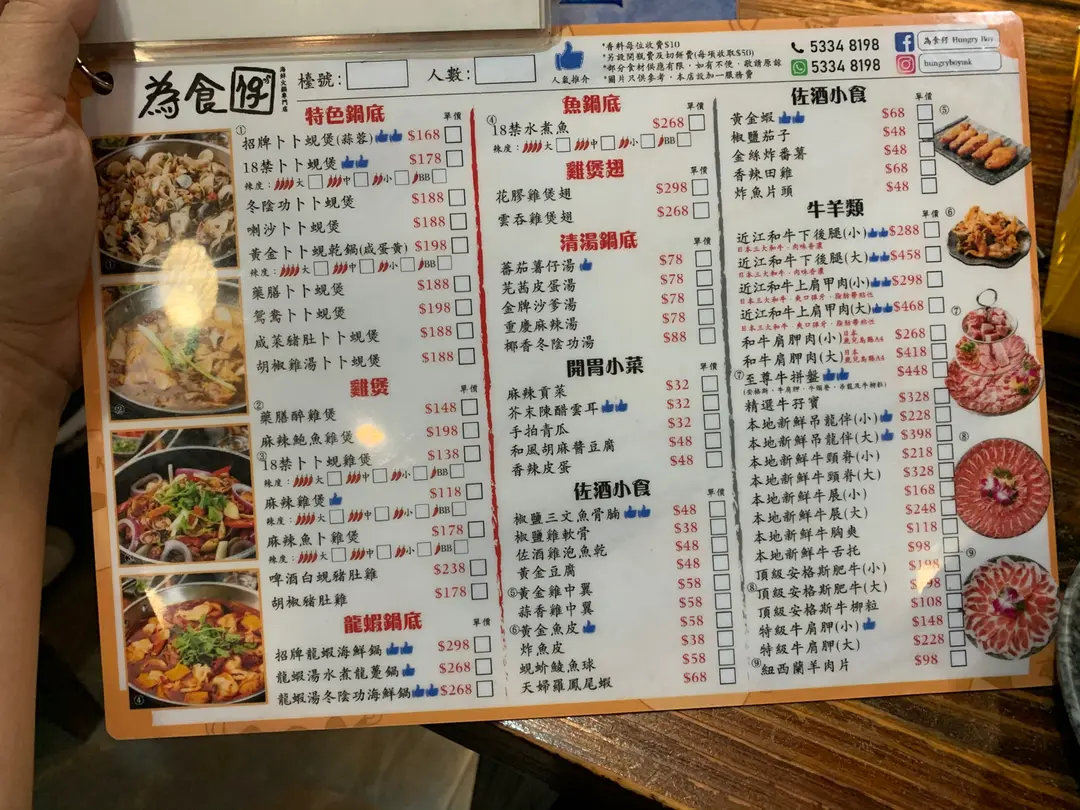 為食仔
海鮮火鍋專門店
檯號：
人數：
人氣推介
*香料每位收費$10
*另設開瓶費及切餅費(每項收取$50)
*部分食材供應有限，如有不便，敬請原諒
*圖片只供參考，本店設加一服務費
5334 8198
5334 8198
為食仔 Hungry Boy
hungryboymk
特色鍋底
單價
①招牌卜卜蜆煲(蒜蓉) $168
18禁卜卜蜆煲 $178
辣度： 大 中 小 BB
冬陰功卜卜蜆煲 $188
喇沙卜卜蜆煲 $188
黃金卜卜蜆乾鍋(咸蛋黃) $198
辣度： 大 中 小 BB
藥膳卜卜蜆煲 $188
鴛鴦卜卜蜆煲 $198
咸菜豬肚卜卜蜆煲 $188
胡椒雞湯卜卜蜆煲 $188
雞煲
單價
②藥膳醉雞煲 $148
麻辣鮑魚雞煲 $198
③18禁卜卜蜆雞煲 $138
辣度： 大 中 小 BB
麻辣雞煲 $118
辣度： 大 中 小 BB
麻辣魚卜雞煲 $178
辣度： 大 中 小 BB
啤酒白蜆豬肚雞 $238
胡椒豬肚雞 $178
龍蝦鍋底
單價
招牌龍蝦海鮮鍋 $298
龍蝦湯水煮龍躉鍋 $268
龍蝦湯冬陰功海鮮鍋 $268
魚鍋底
單價
④18禁水煮魚 $268
辣度： 大 中 小 BB
雞煲翅
單價
花膠雞煲翅 $298
雲吞雞煲翅 $268
清湯鍋底
單價
蕃茄薯仔湯 $78
芫茜皮蛋湯 $78
金牌沙爹湯 $78
重慶麻辣湯 $78
椰香冬陰功湯 $88
開胃小菜
單價
麻辣貢菜 $32
芥末陳醋雲耳 $32
手拍青瓜 $32
和風胡麻醬豆腐 $48
香辣皮蛋 $48
佐酒小食
單價
椒鹽三文魚骨腩 $48
椒鹽雞軟骨 $38
佐酒雞泡魚乾 $48
黃金豆腐 $48
⑤黃金雞中翼 $58
蒜香雞中翼 $58
⑥黃金魚皮 $58
炸魚皮 $38
蜆蚧鯪魚球 $58
天婦羅鳳尾蝦 $68
佐酒小食
單價
黃金蝦 $68
椒鹽茄子 $48
金絲炸番薯 $48
香辣田雞 $68
炸魚片頭 $48
牛羊類
單價
近江和牛下後腿(小) $288
日本三大和牛．肉味香濃
近江和牛下後腿(大) $458
日本三大和牛．肉味香濃
近江和牛上肩甲肉(小) $298
日本三大和牛．爽口彈牙．脂肪帶黏性
近江和牛上肩甲肉(大) $468
日本三大和牛．爽口彈牙．脂肪帶黏性
和牛肩胛肉(小) 日本鹿兒島縣A4 $268
和牛肩胛肉(大) 日本鹿兒島縣A4 $418
⑦至尊牛拼盤 $448
精選牛孖寶 $328
本地新鮮吊龍伴(小) $228
本地新鮮吊龍伴(大) $398
本地新鮮牛頸脊(小) $218
本地新鮮牛頸脊(大) $328
本地新鮮牛展(小) $168
本地新鮮牛展(大) $248
本地新鮮牛胸爽 $118
本地新鮮牛舌托 $98
頂級安格斯肥牛(小) $198
⑧頂級安格斯肥牛(大)
頂級安格斯牛柳粒 $108
特級牛肩胛(小) $148
特級牛肩胛(大) $228
⑨紐西蘭羊肉片 $98
①
②
④
⑤
⑥
⑦
⑧
⑨